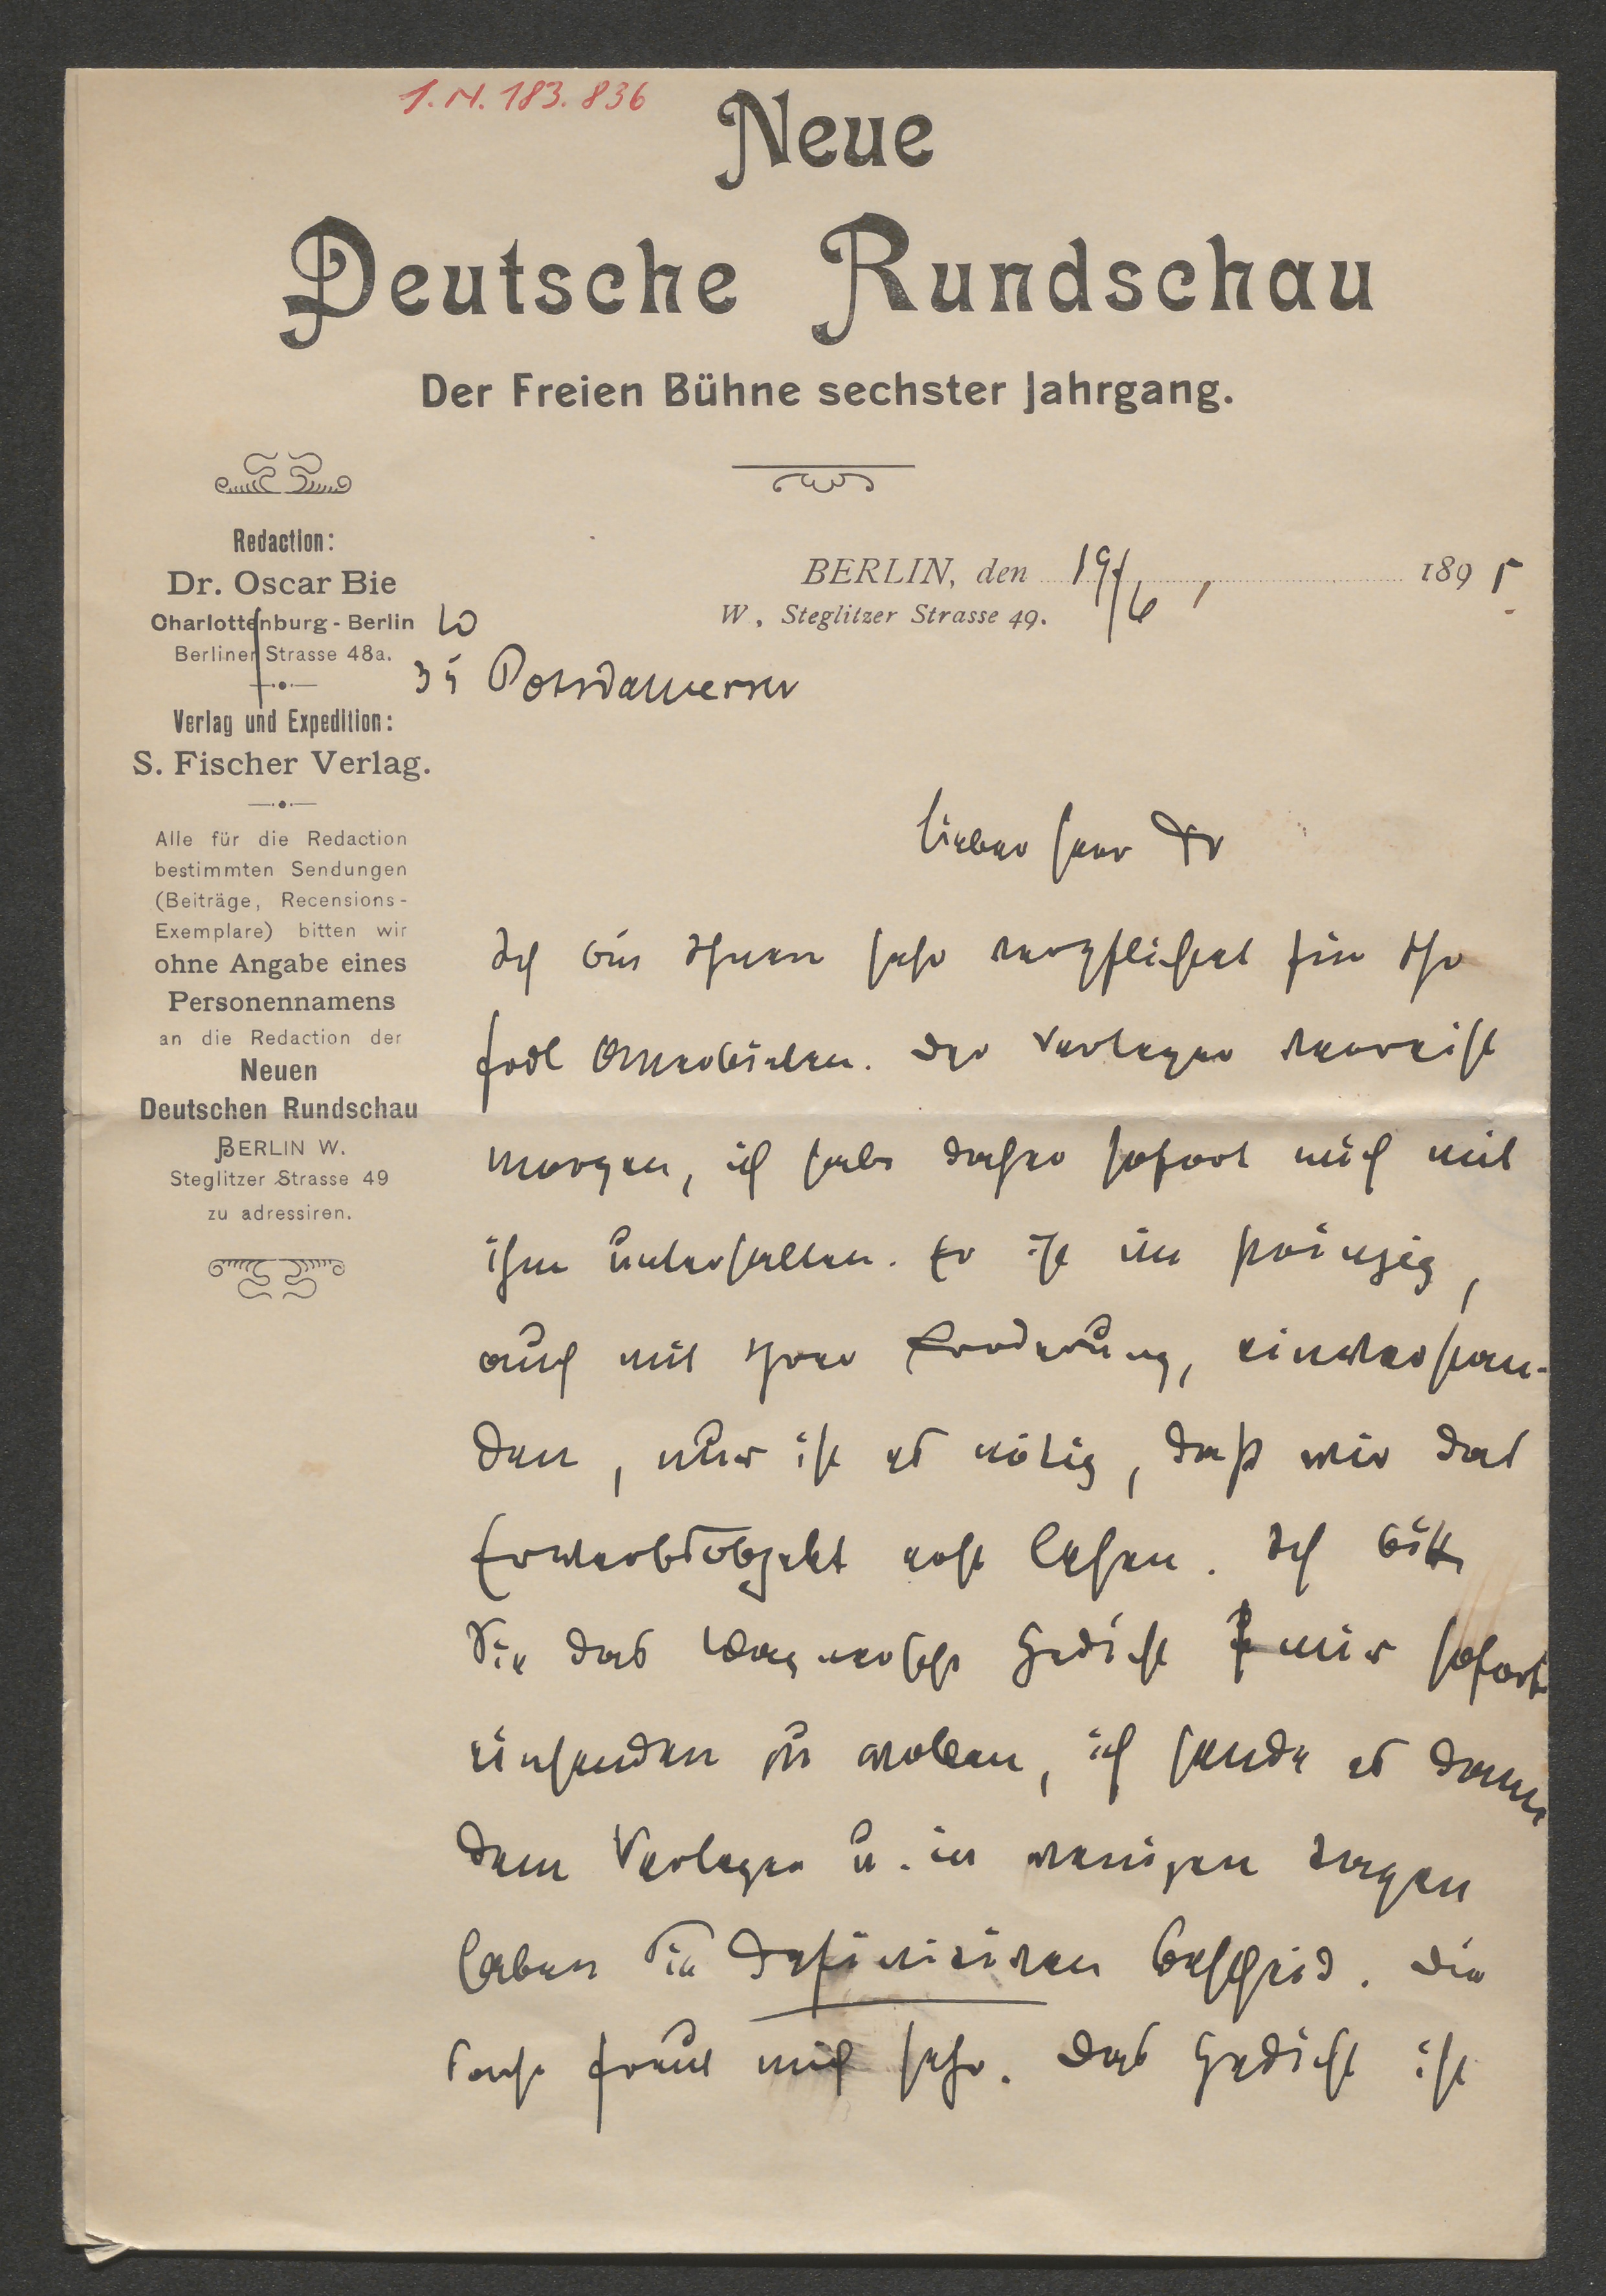 I.N. 183.836
Neue
Deutsche Rundschau
Der Freien Bühne sechster Jahrgang.
Redaction:
Dr. Oscar Bie
Charlottenburg - Berlin W
Berliner Strasse 48a.
35 Potsdamerstr
Verlag und Expedition:
S. Fischer Verlag.
Alle für die Redaction
bestimmten Sendungen
(Beiträge, Recensions-
Exemplare) bitten wir
ohne Angabe eines
Personennamens
an die Redaction der
Neuen
Deutschen Rundschau
BERLIN W.
Steglitzer Strasse 49
zu adressiren.
BERLIN, den 19/6 1895
W., Steglitzer Strasse 49.
Lieber Herr Dr
Ich bin Ihnen sehr verpflichtet für Ihr
frdl Anerbieten. Der Verleger verreist
morgen, ich habe daher sofort mich mit
ihm unterhalten. Er ist im Prinzip,
auch mit Ihrer Forderung, einverstan-
den, nur ist es nötig, daß wir das
Erwerbsobjekt erst lesen. Ich bitte
Sie das Wagnersche Gedicht mir sofort
einsenden zu wollen, ich sende es dann
dem Verleger u. in wenigen Tagen
haben Sie definitiven Bescheid. Die
Sache freut mich sehr. Das Gedicht ist